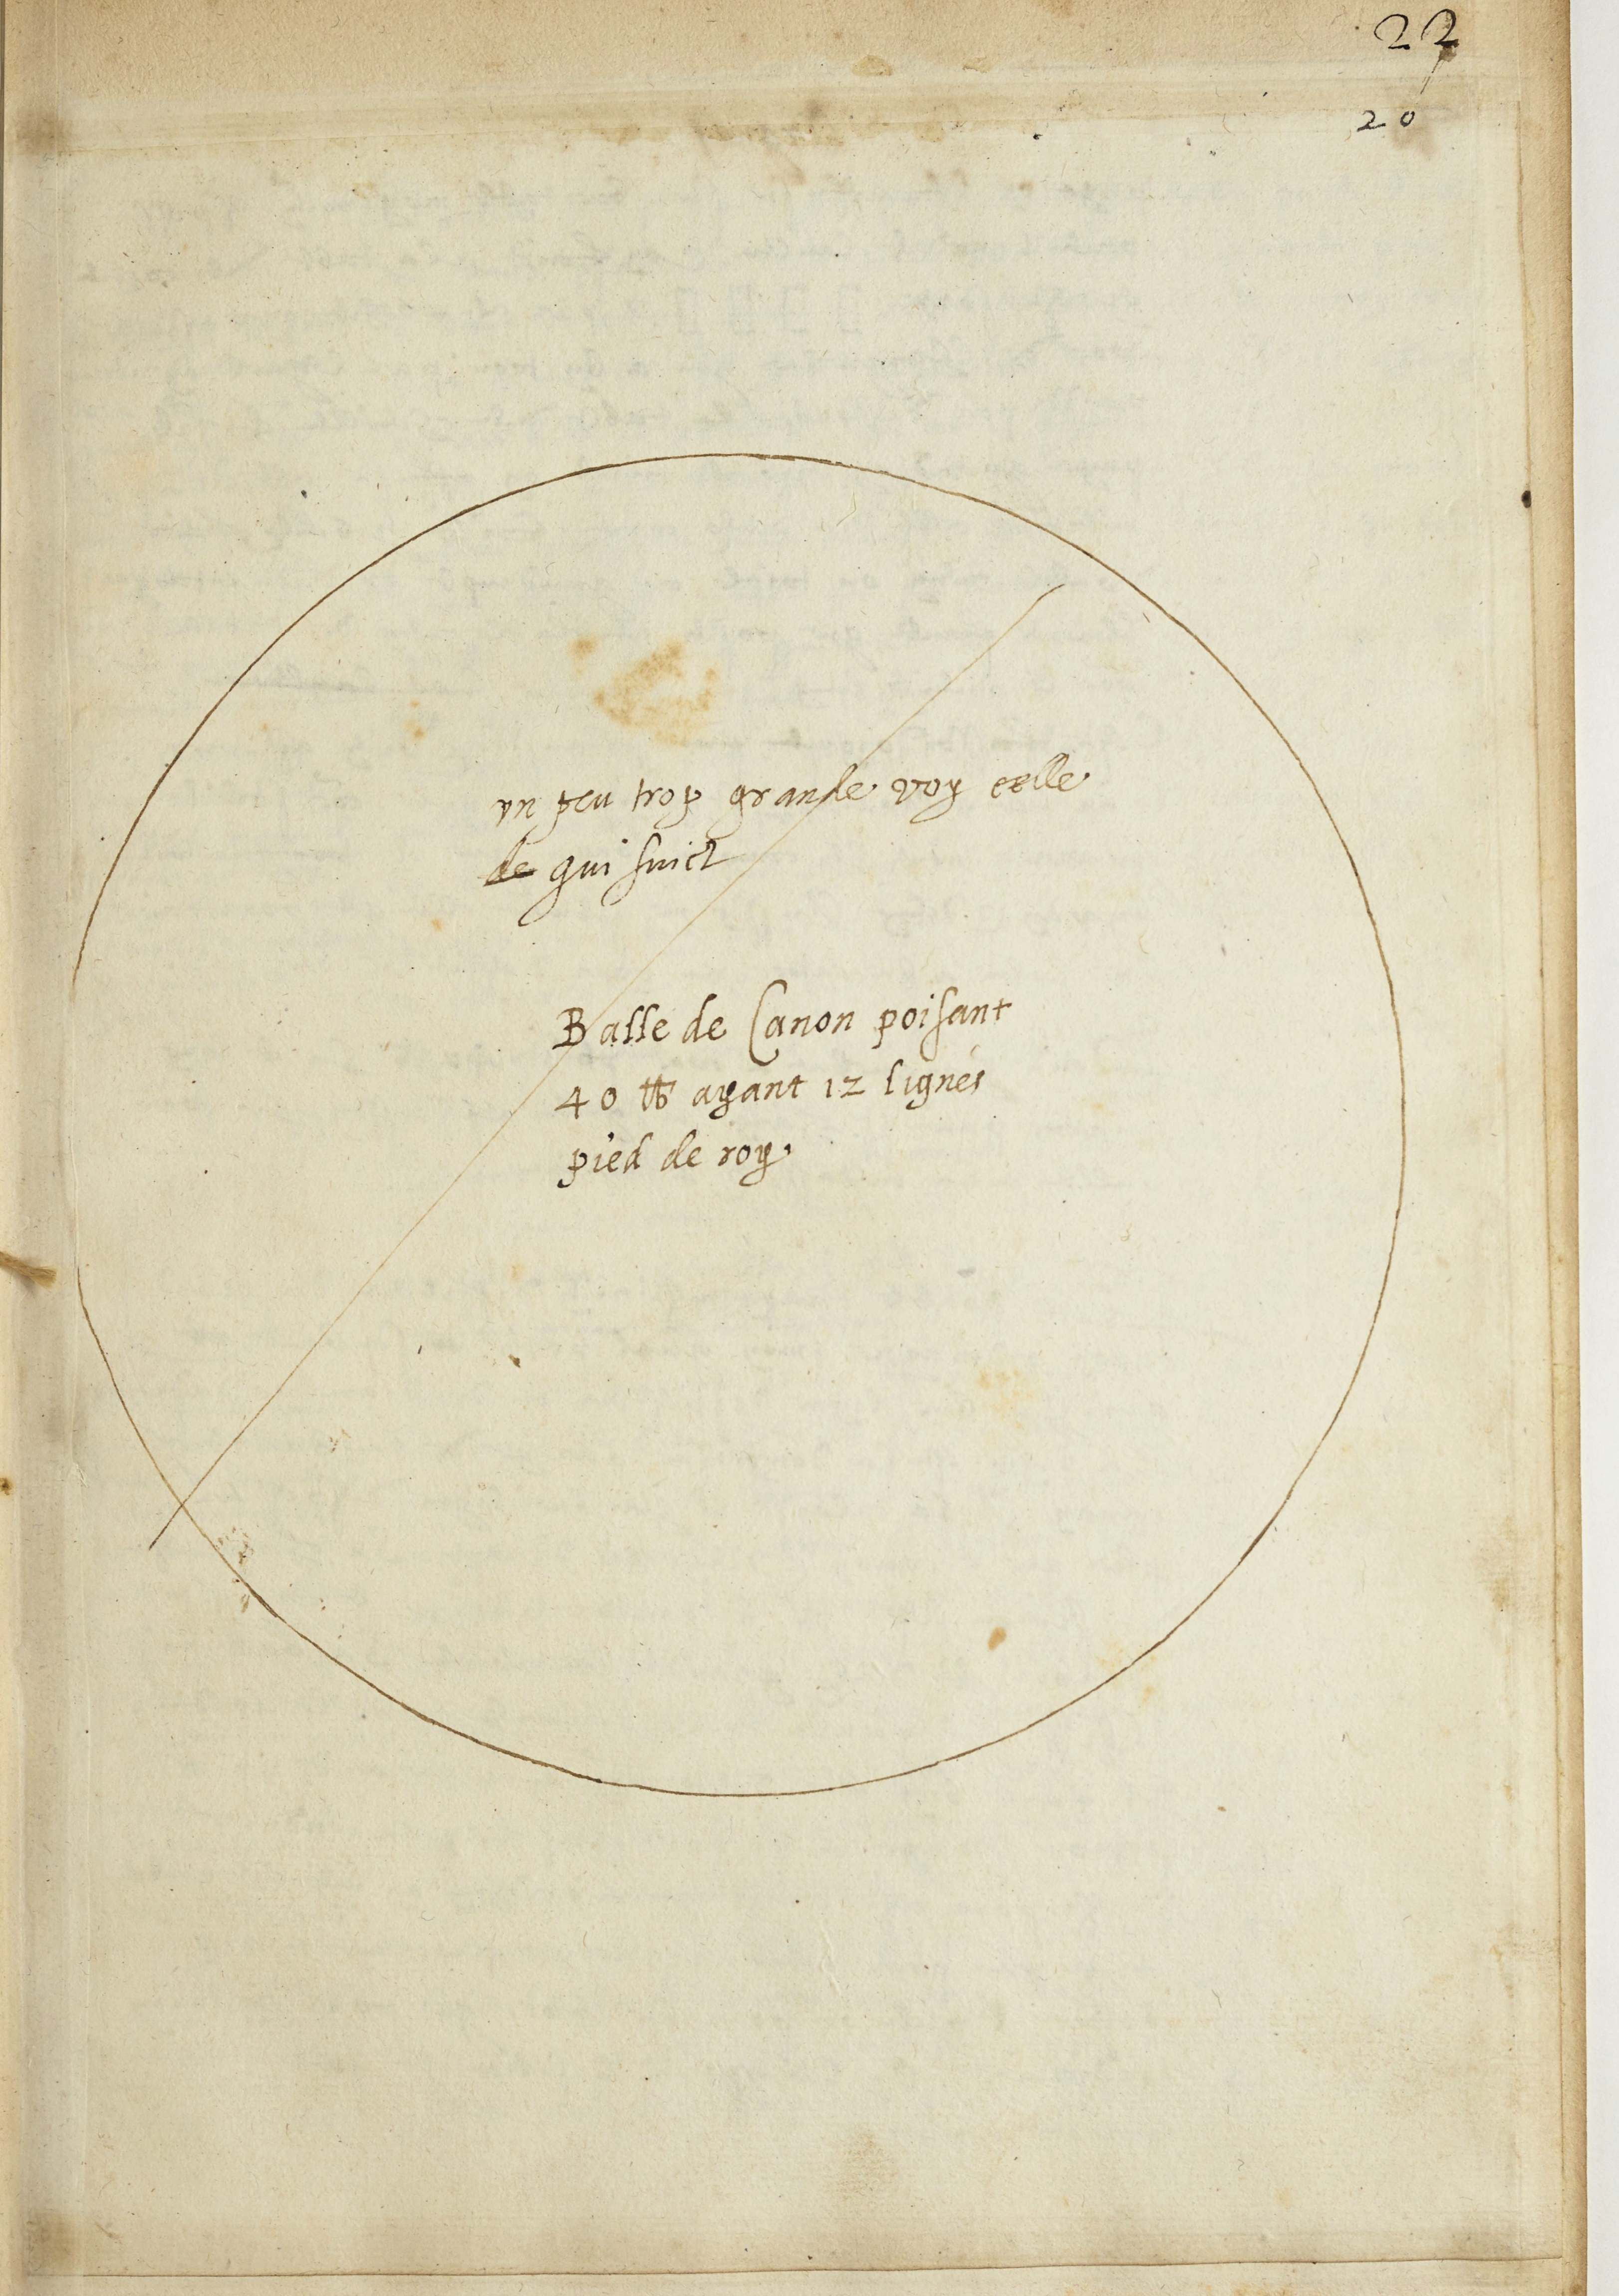 22
20
vn peu trop grande voy celle
de qui suict
Balle de Canon poisant
40 ℔ ayant 12 lignes
pied de roy.